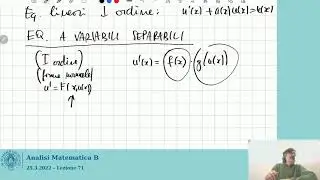 Eq. lineari I ordine: u'(x) + a(x)u(x) = b(x)
EQ. A VARIABILI SEPARABILI
(I ordine) u'(x) = f(x) · g(u(x))
(forma normale)
u' = F(x,u(x))
Analisi Matematica B
25.3.2022 - Lezione 71